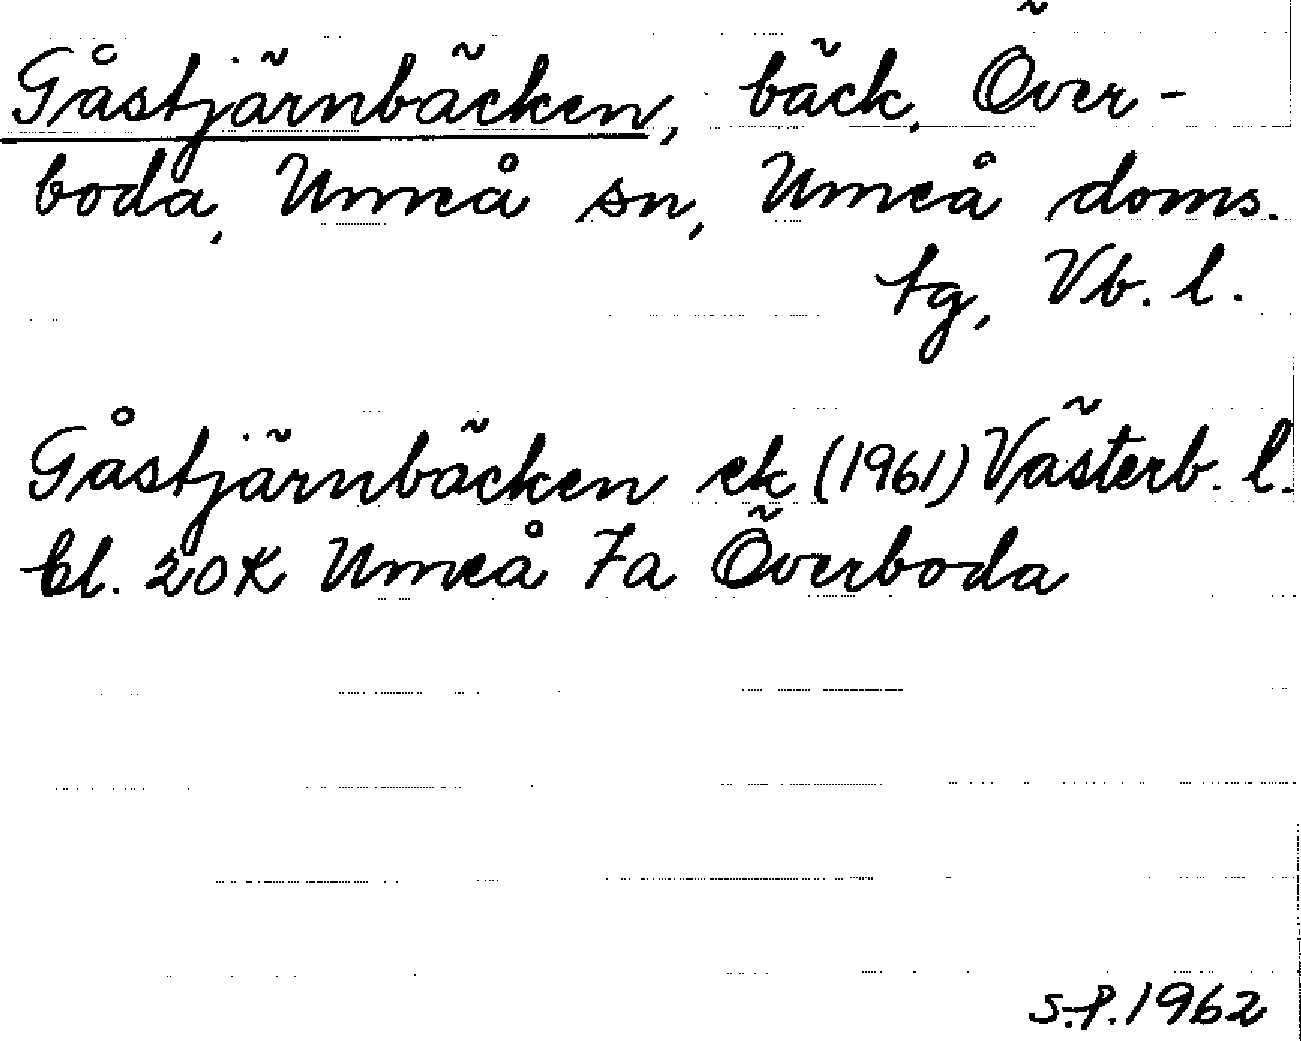 Gåstjärnbäcken, bäck, Över-
boda, Umeå sn, Umeå doms.
tg, Vb. l.
Gåstjärnbäcken ek (1961) Västerb. l.
bl. 20K Umeå 7a Överboda
S.P. 1962